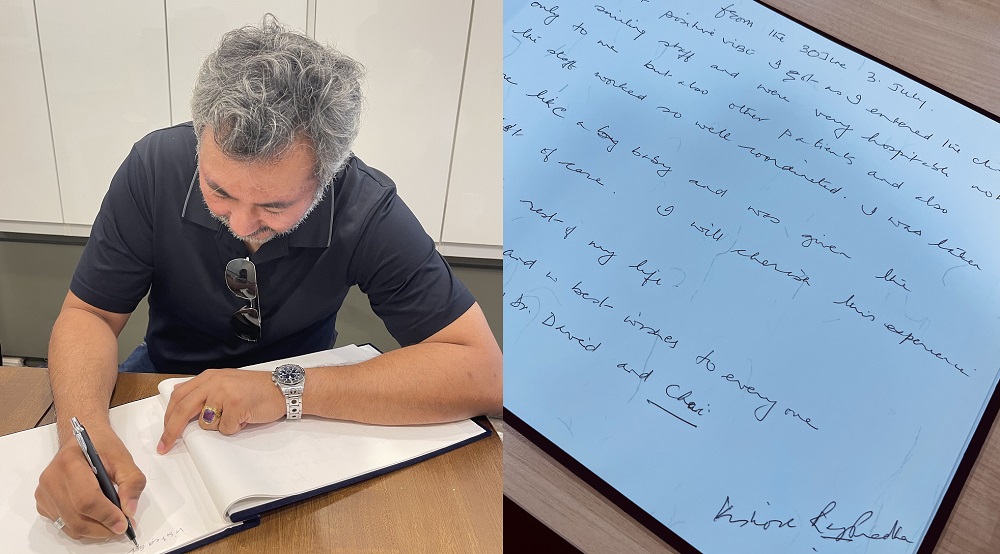 from the 30 June 3. July.
positive vibe I got as I entered the
smiling staff and were very hospitable no
only to me but also other patients and also
the staff worked so well coordinated. I was taken
like a baby and was given the
of care. I will cherish this experience
rest of my life.
and best wishes to every one
Dr. David and Choi
Kishore